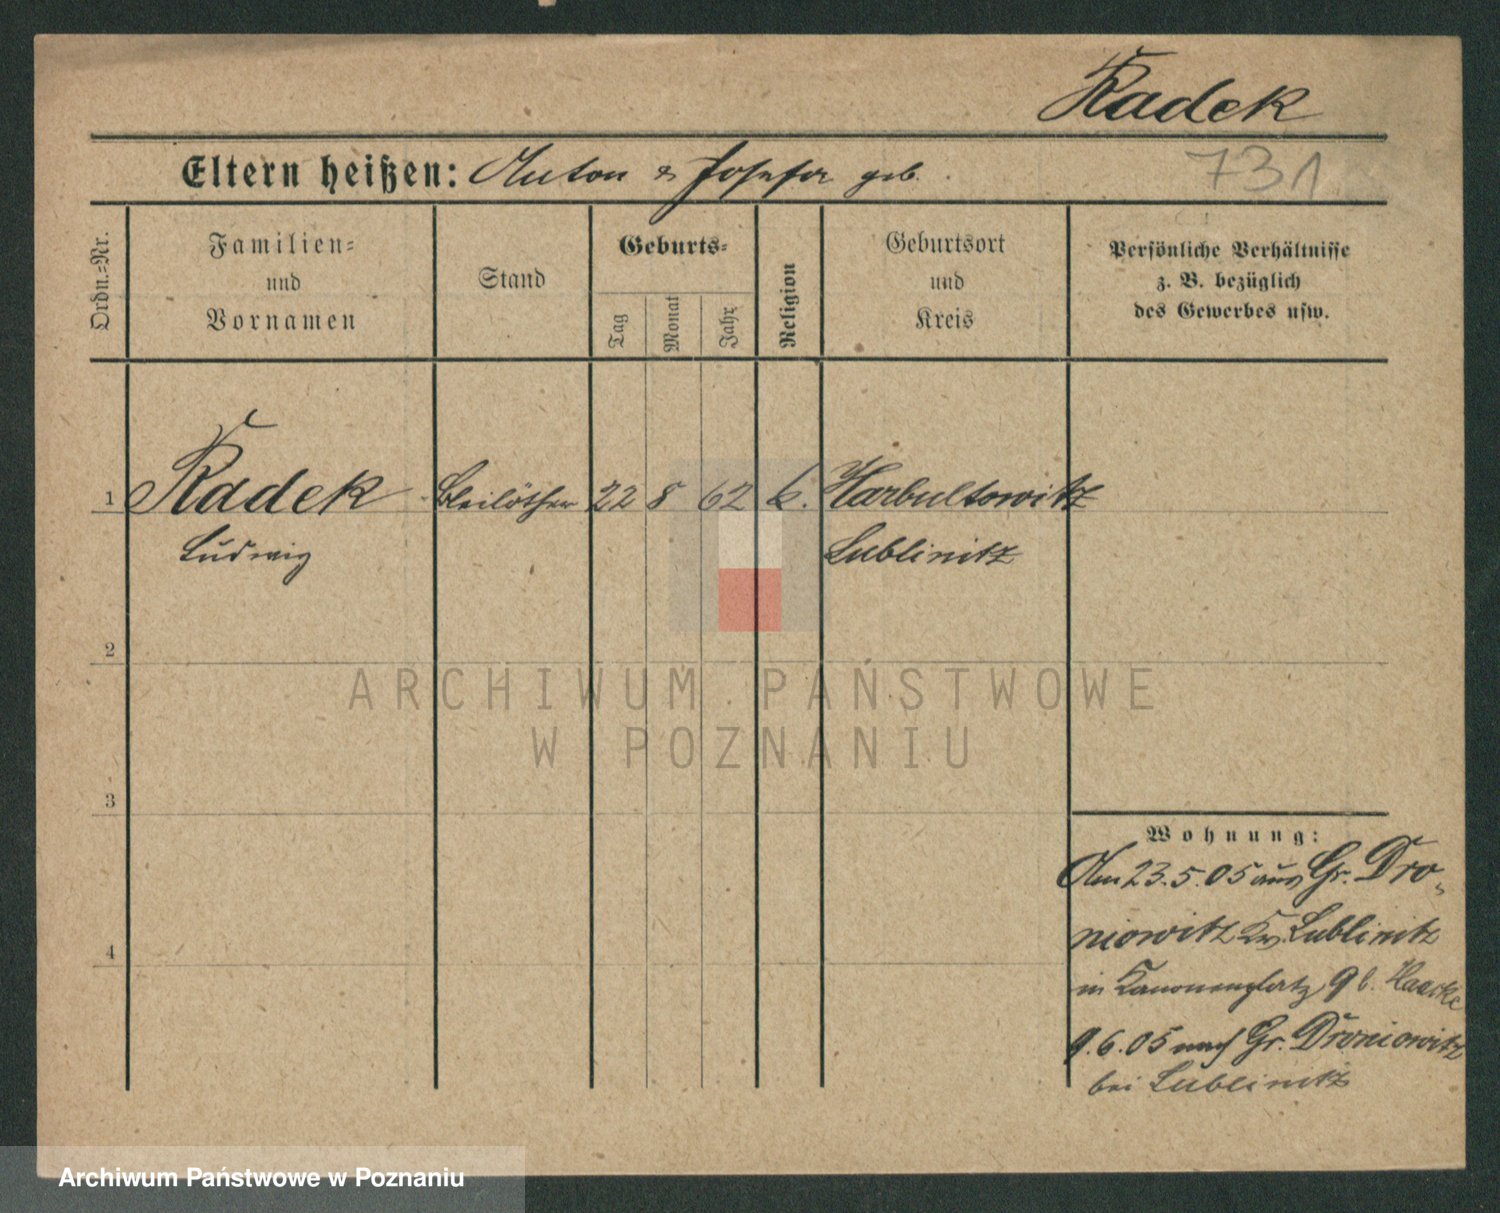 Radek
Eltern heißen: Anton & Josefa geb.
731
Ordn.=Nr.
Familien=
und
Vornamen
Stand
Geburts=
Tag
Monat
Jahr
Religion
Geburtsort
und
Kreis
Persönliche Verhältnisse
z. B. bezüglich
des Gewerbes usw.
1 Radek Bleilöther 22 8 62 k. Harbultowitz
Ludwig Lublinitz
2
3
4
Wohnung:
Am 23.5.05 aus Gr. Dro=
niowitz Kr. Lublinitz
in Kanonenplatz 9 b. Haacke
9.6.05 nach Gr. Droniowitz
bei Lublinitz
ARCHIWUM PAŃSTWOWE
W POZNANIU
Archiwum Państwowe w Poznaniu